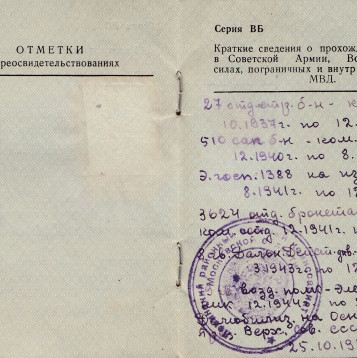 ОТМЕТКИ
реосвидетельствованиях
Серия ВБ
Краткие сведения о прохожд
в Советской Армии, Во
силах, пограничных и внутр
МВД.
27 отд. стр. б-н - к
10.1937г. по 12.
510 сап б-н - ком.
12.1940г. по 8.
Э.госп. 1388 на из
8.1941г. по 1
3624 отд. бронета
ком. отд. 12.1941г.
3.1943г. по 12
возд. помо- Эле
12.1944г. по
на Осн
Верх. Сов. ссс
25.10.19